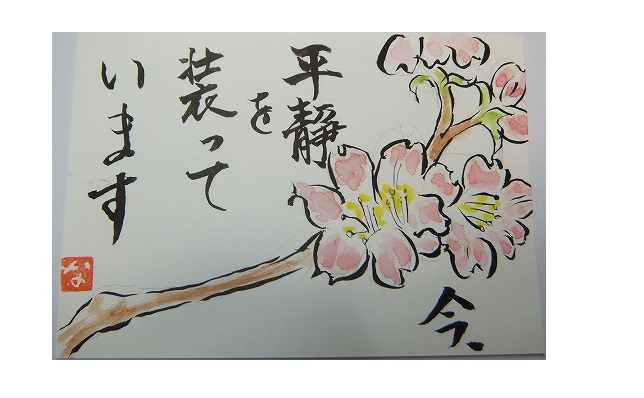 今、
平静を
装って
います
な